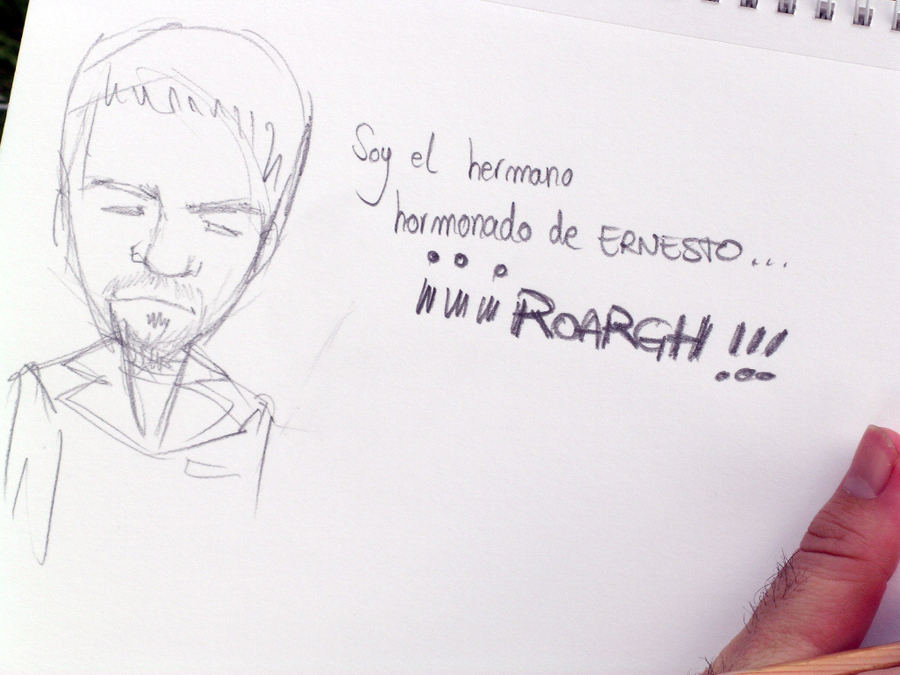 Soy el hermano
hormonado de ERNESTO...
¡¡¡ROARGH!!!